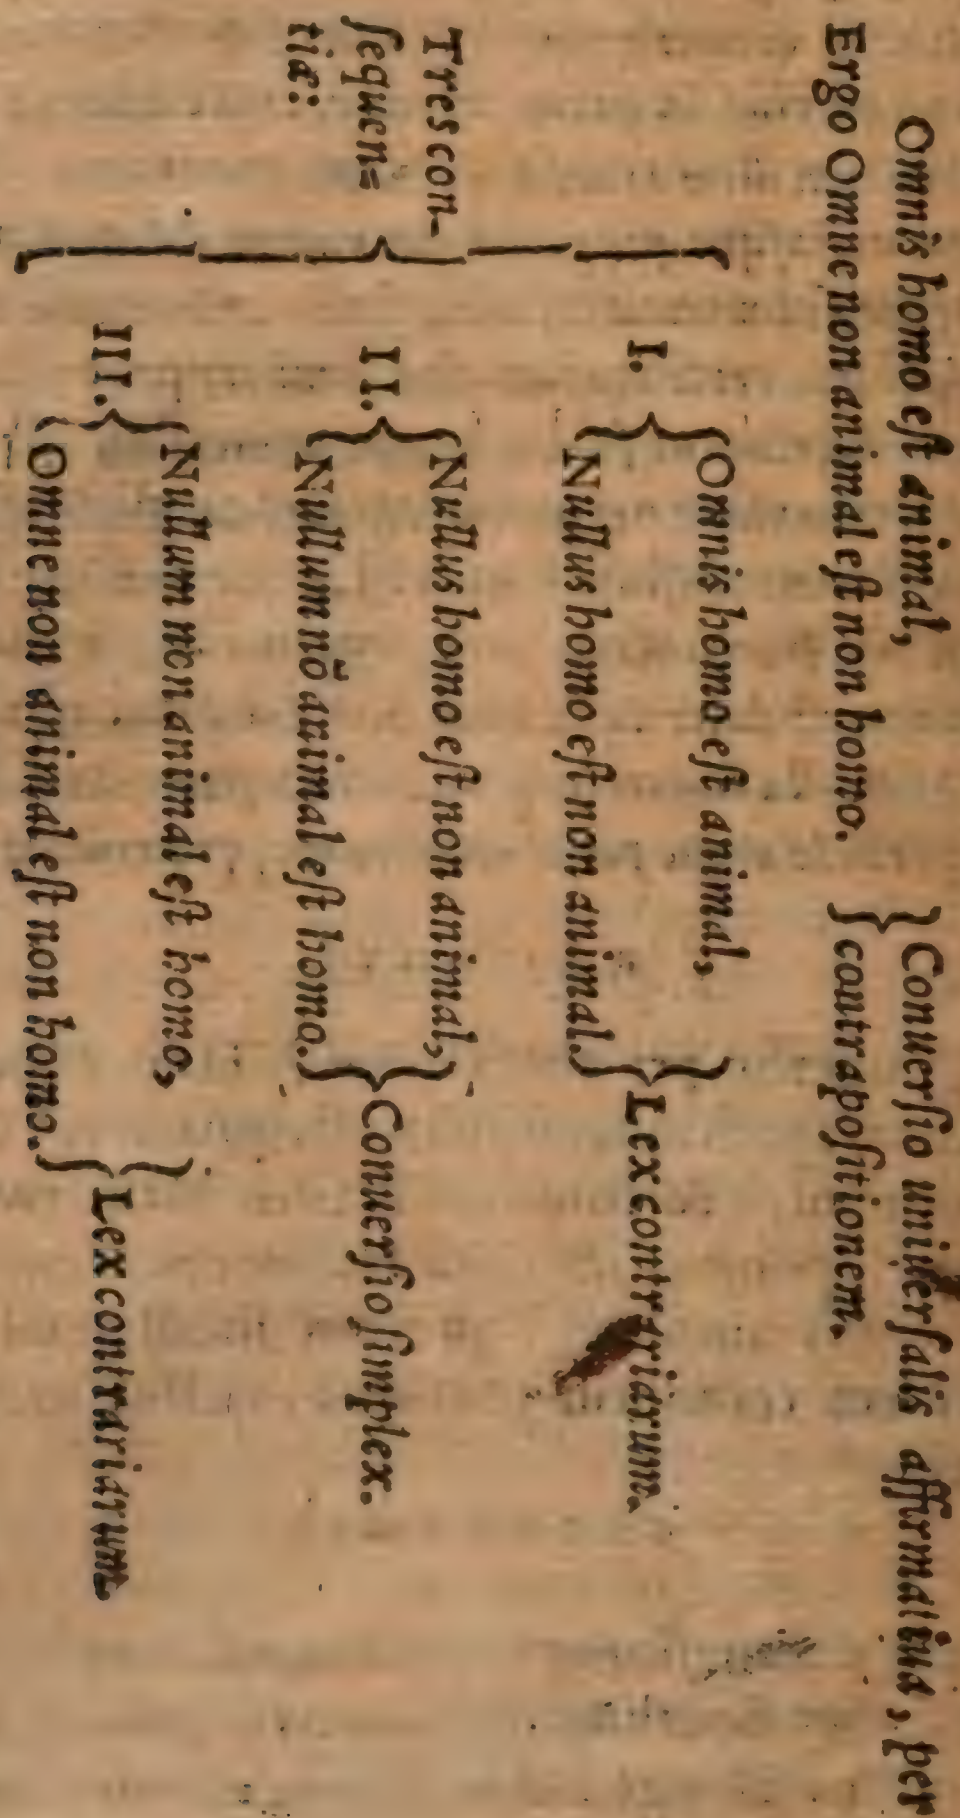 Omnis homo eſt animal,
Ergo Omne non animal eſt non homo.
Conuerſio uniuerſalis affirmatiua, per
contrapoſitionem.
Tres con-
ſequen=
tiæ:
I.
Omnis homo eſt animal,
Nullus homo eſt non animal.
Lex contrariarum.
II.
Nullus homo eſt non animal,
Nullum nõ animal eſt homo.
Conuerſio ſimplex.
III.
Nullum non animal eſt homo,
Omne non animal eſt non homo.
Lex contrariarum.